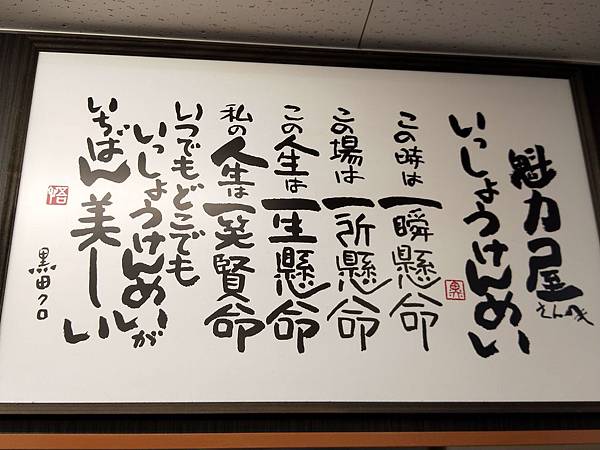 魁力屋
いっしょうけんめい
この時は一瞬懸命
この場は一所懸命
この人生は一生懸命
私の人生は一笑賢命
いつでもどこでも
いっしょうけんめいが
いちばん美しい
黒田クロ